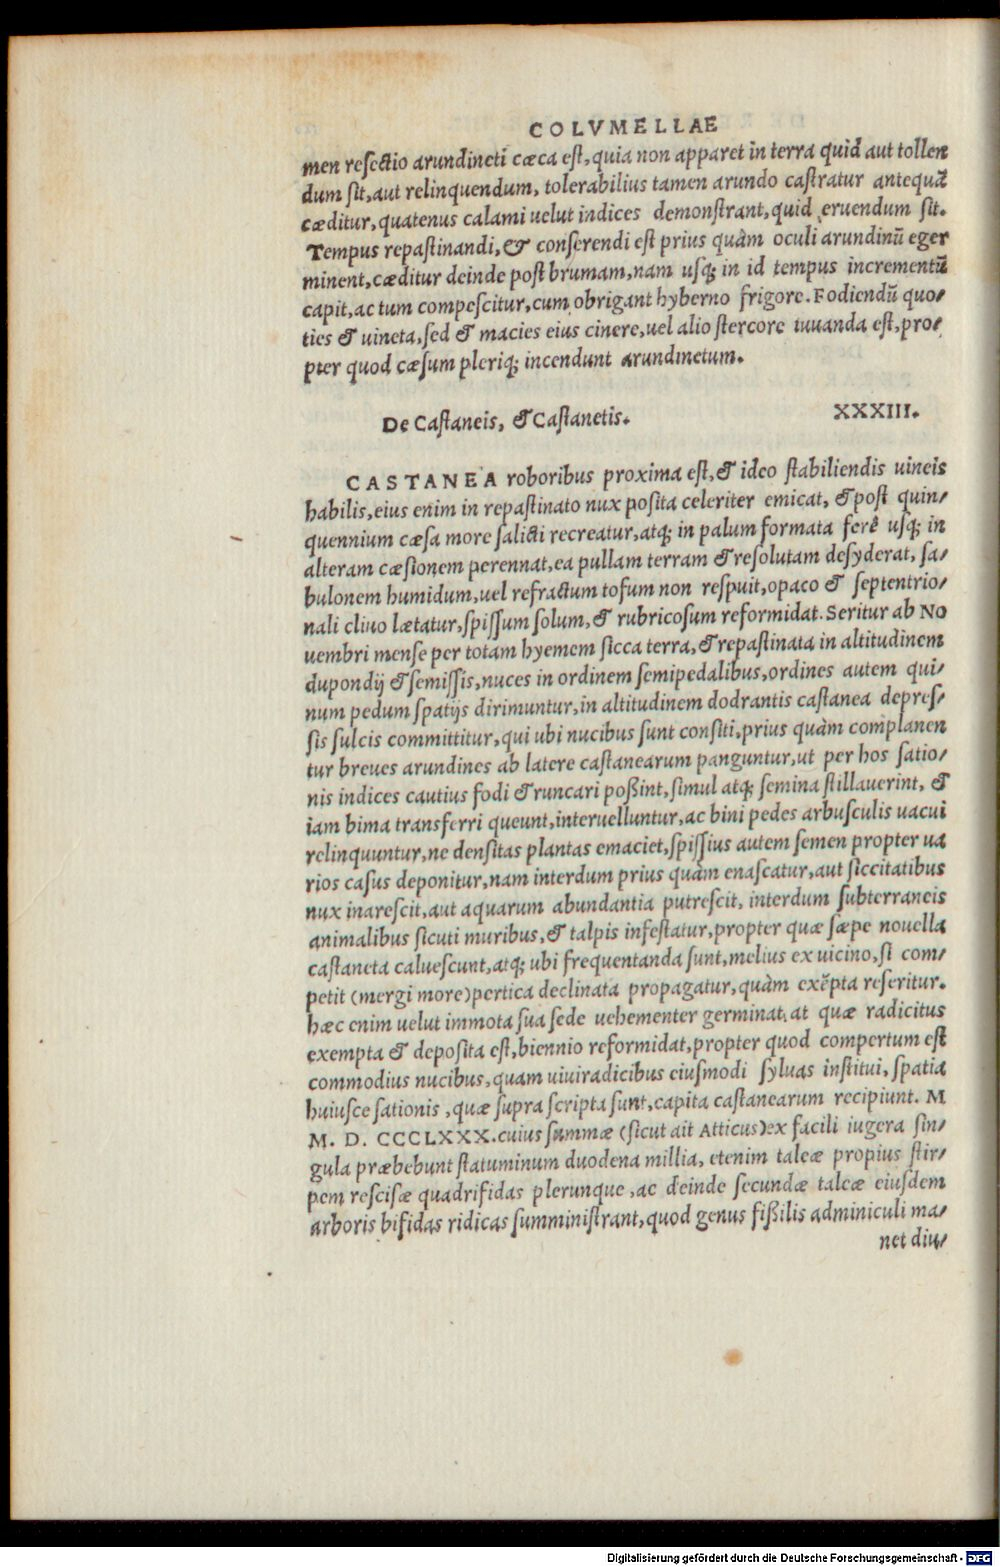 COLVMELLAE
men resectio arundineti cæca est, quia non apparet in terra quid aut tollen
dum sit, aut relinquendum, tolerabilius tamen arundo castratur antequā
cæditur, quatenus calami uelut indices demonstrant, quid eruendum sit.
Tempus repastinandi, & conserendi est prius quàm oculi arundinū eger
minent, cæditur deinde post brumam, nam usq; in id tempus incrementū
capit, ac tum compescitur, cum obrigant hyberno frigore. Fodiendū quo/
ties & uineta, sed & macies eius cinere, uel alio stercore iuuanda est, pro/
pter quod cæsum pleriq; incendunt arundinetum.
De Castaneis, & Castanetis. XXXIII.
CASTANEA roboribus proxima est, & ideo stabiliendis uineis
habilis, eius enim in repastinato nux posita celeriter emicat, & post quin/
quennium cæsa more salicti recreatur, atq; in palum formata ferè usq; in
alteram cæsionem perennat, ea pullam terram & resolutam desyderat, sa/
bulonem humidum, uel refractum tofum non respuit, opaco & septentrio/
nali cliuo lætatur, spissum solum, & rubricosum reformidat. Seritur ab No
uembri mense per totam hyemem sicca terra, & repastinata in altitudinem
dupondij & semissis, nuces in ordinem semipedalibus, ordines autem qui/
num pedum spatijs dirimuntur, in altitudinem dodrantis castanea depres/
sis sulcis committitur, qui ubi nucibus sunt consiti, prius quàm complanen
tur breues arundines ab latere castanearum panguntur, ut per hos satio/
nis indices cautius fodi & runcari possint, simul atq; semina stillauerint, &
iam bima transferri queunt, interuelluntur, ac bini pedes arbusculis uacui
relinquuntur, ne densitas plantas emaciet, spissius autem semen propter ua
rios casus deponitur, nam interdum prius quàm enascatur, aut siccitatibus
nux inarescit, aut aquarum abundantia putrescit, interdum subterraneis
animalibus sicuti muribus, & talpis infestatur, propter quæ sæpe nouella
castaneta caluescunt, atq; ubi frequentanda sunt, melius ex uicino, si com/
petit (mergi more) pertica declinata propagatur, quàm exēpta reseritur.
hæc enim uelut immota sua sede uehementer germinat, at quæ radicitus
exempta & deposita est, biennio reformidat, propter quod compertum est
commodius nucibus, quam uiuiradicibus eiusmodi syluas institui, spatia
huiusce sationis, quæ supra scripta sunt, capita castanearum recipiunt. M
M. D. CCCLXXX. cuius summæ (sicut ait Atticus) ex facili iugera sin/
gula præbebunt statuminum duodena millia, etenim taleæ propius stir/
pem rescisæ quadrifidas plerunque, ac deinde secundæ taleæ eiusdem
arboris bifidas ridicas sumministrant, quod genus fissilis adminiculi ma/
net diu/
Digitalisierung gefördert durch die Deutsche Forschungsgemeinschaft - DFG